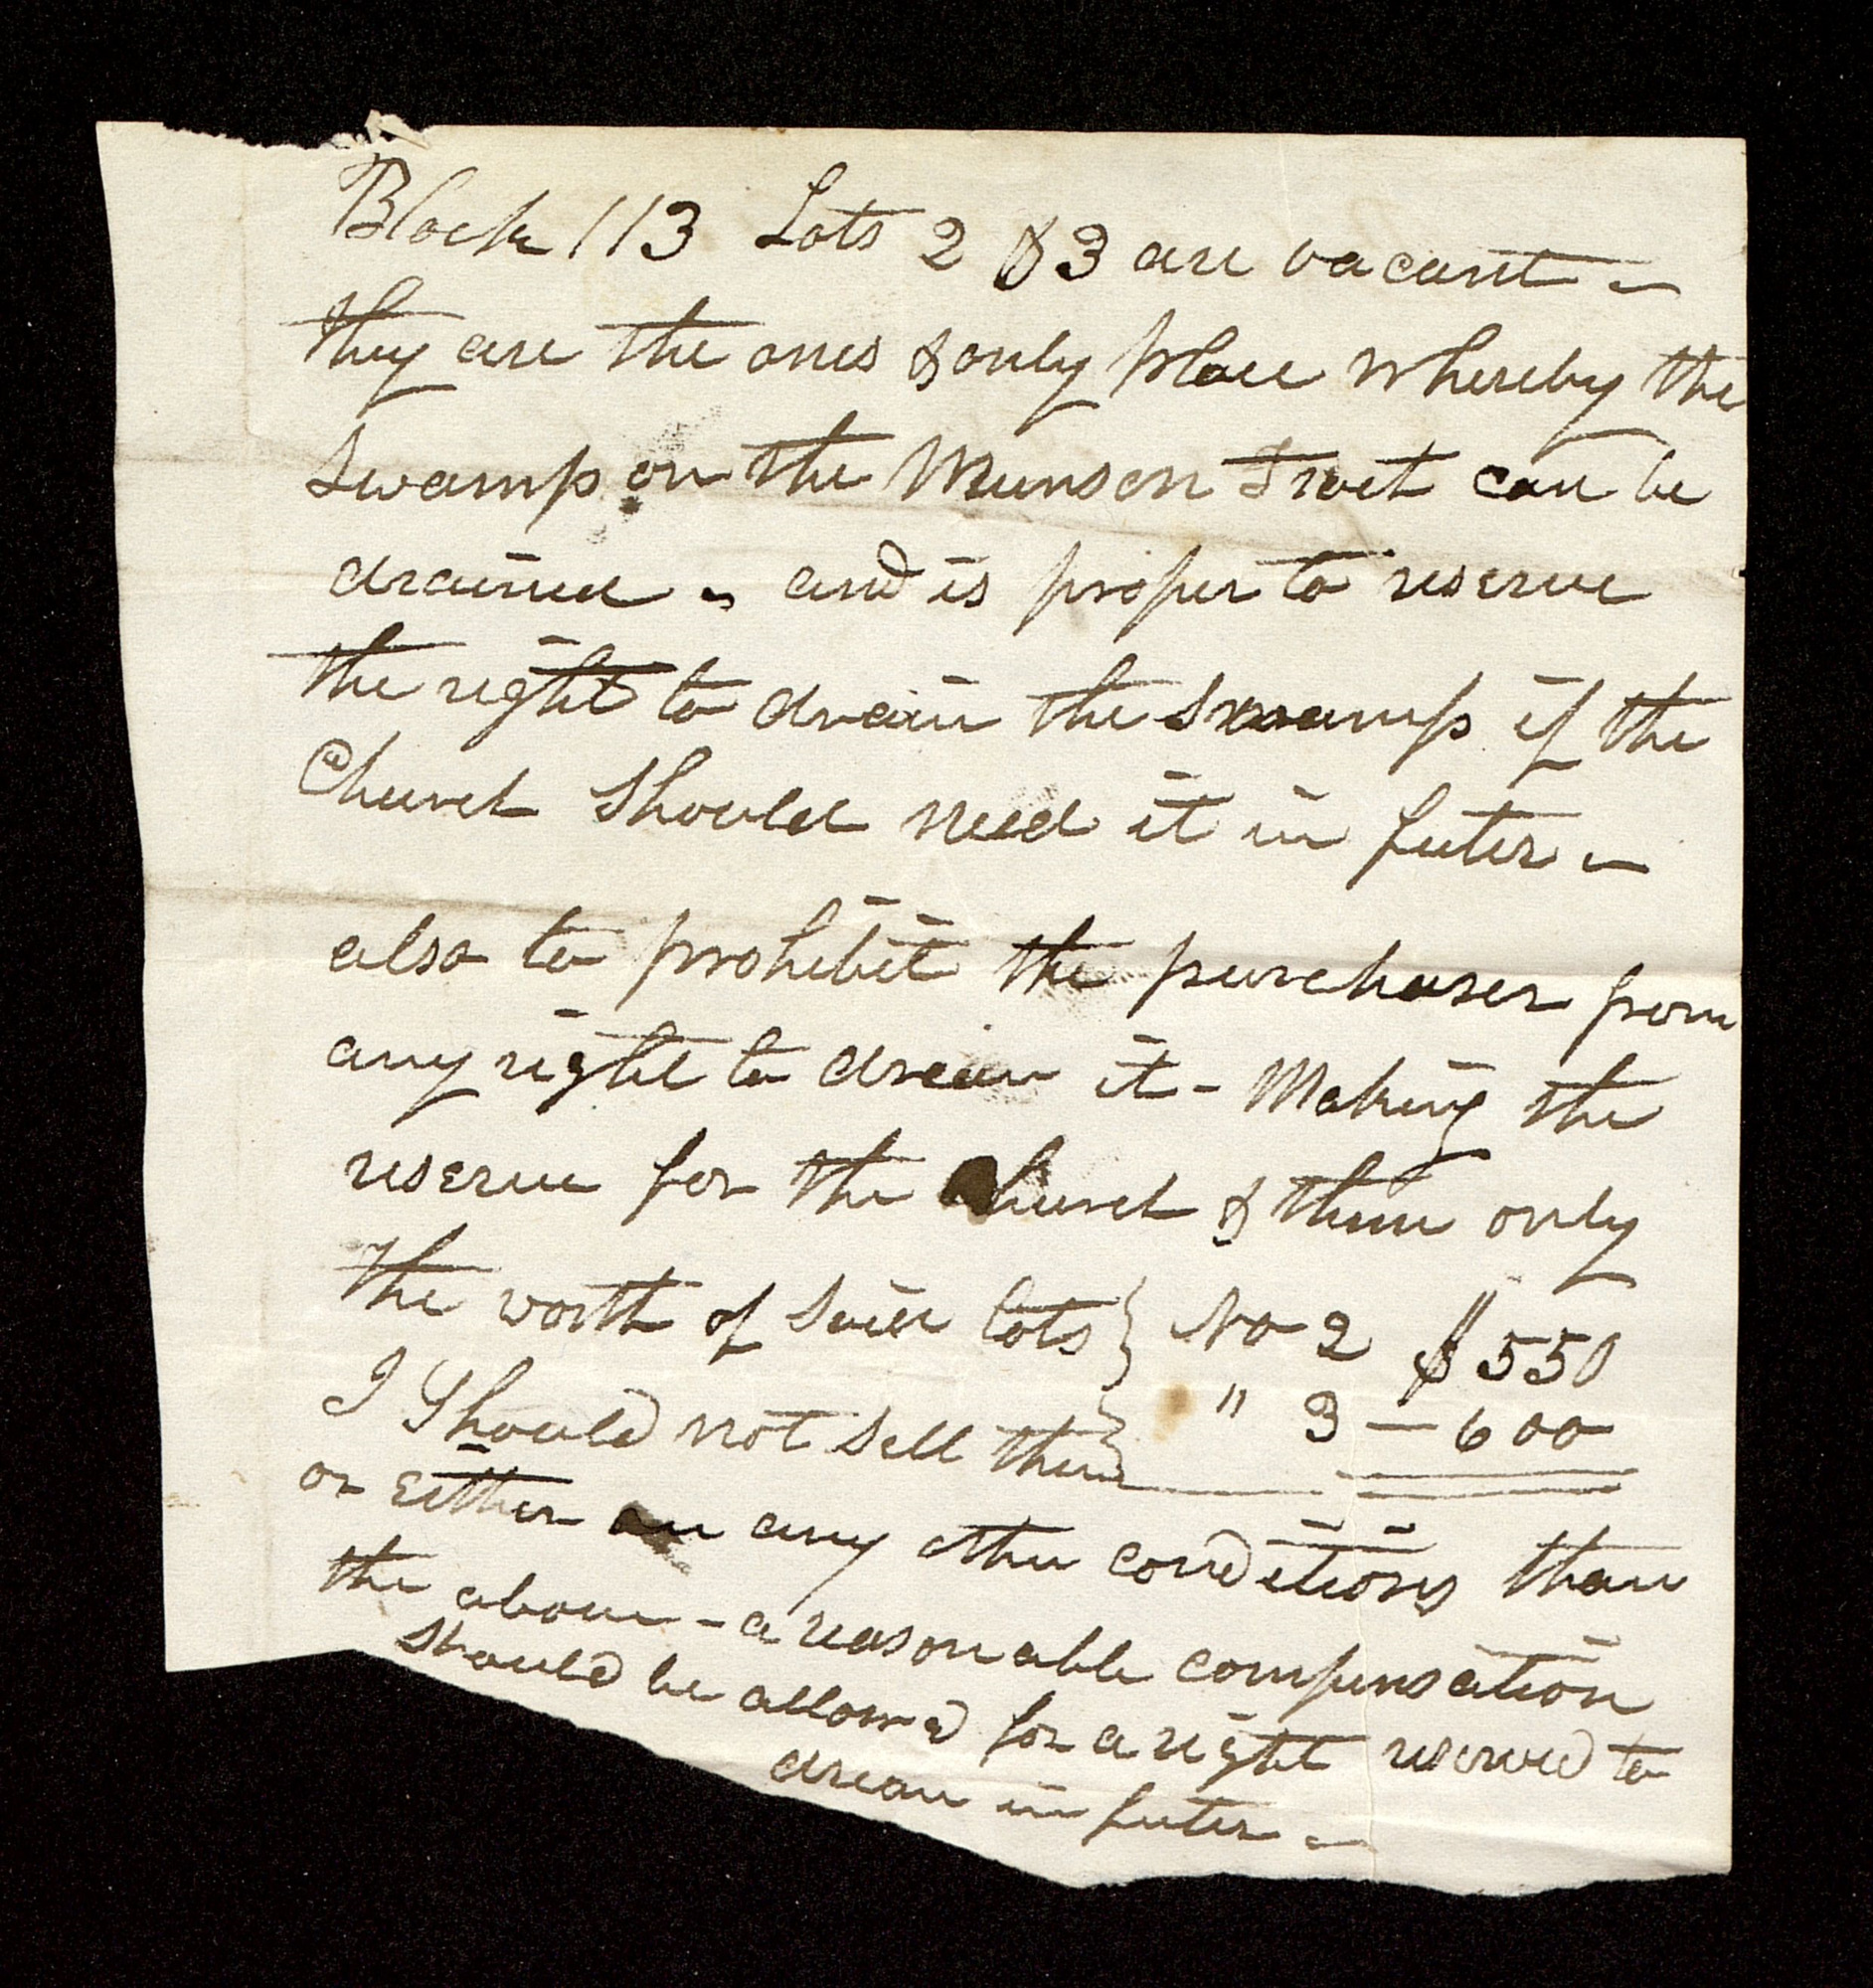 Block 113 Lots 2 & 3 are vacant –
they are the ones & only place whereby the
Swamp on the Munson Tract can be
drained – and is proper to reserve
the right to drain the Swamp if the
Church Should need it in futer –
also to prohibit the purchaser from
any right to drain it – Making the
reserve for the Church & them only
The worth of Said lots } No 2 $550
I Should not Sell them } " 3 – 600
or Either on any other conditions than
the above – a reasonable compensation
should be allowed for a right reserved to
drean in futer –